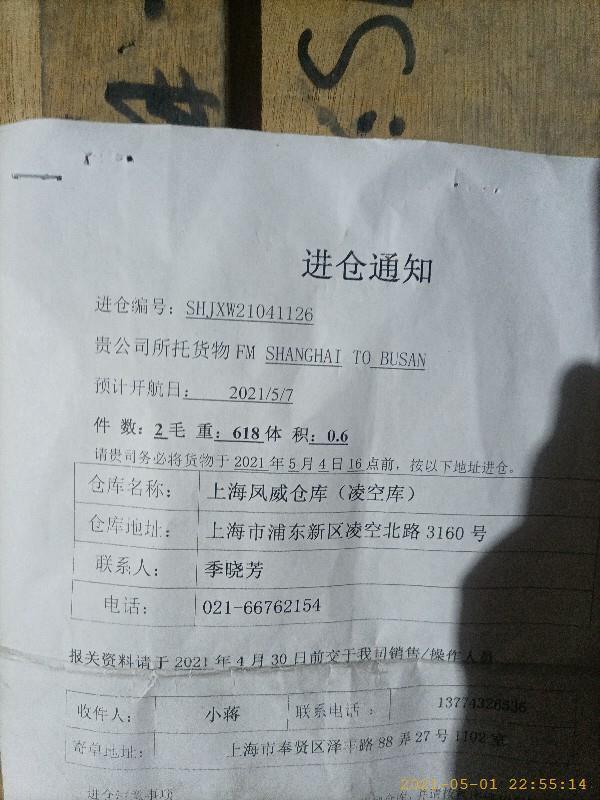 进仓通知
进仓编号：SHJXW21041126
贵公司所托货物FM SHANGHAI TO BUSAN
预计开航日： 2021/5/7
件 数：2毛 重：618体 积：0.6
请贵司务必将货物于 2021 年 5 月 4 日 16 点前，按以下地址进仓。
仓库名称： 上海凤威仓库（凌空库）
仓库地址： 上海市浦东新区凌空北路 3160 号
联系人： 季晓芳
电话： 021-66762154
报关资料请于 2021 年 4 月 30 日前交于我司销售/操作人员
收件人： 小蒋 联系电话： 13774326536
寄单地址： 上海市奉贤区泽丰路 88 弄 27 号 1102 室
进仓注意事项
2021-05-01 22:55:14